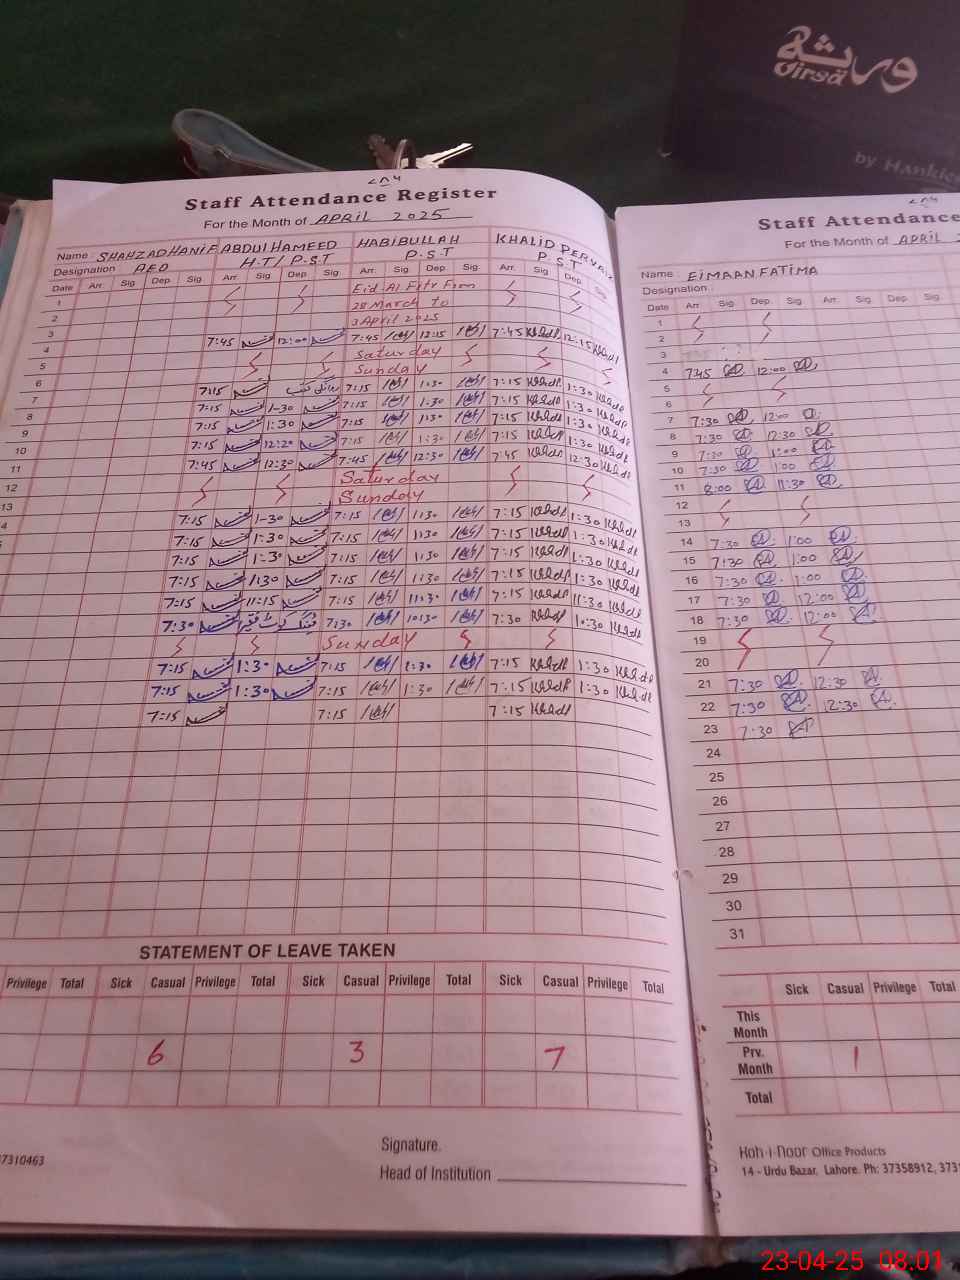 ورثة
virsa
by Hankies
Staff Attendance Register
For the Month of APRIL 2025
Name : SHAHZAD HANIF ABDUL HAMEED HABIBULLAH KHALID PERVAIZ
Designation AEO H.T/P.S.T P.S.T P.S.T
Date Arr. Sig Dep Sig Arr. Sig Dep Sig Arr. Sig Dep Sig Arr. Sig Dep Sig
1 Eid-Al Fitr From
2 28 March to
3 3 April 2025
4 7:45 12:00 7:45 12:15 7:45 12:15
5 Saturday
6 Sunday
7 7:15 7:15 1:30 7:15 1:30
8 7:15 1-30 7:15 1:30 7:15 1:30
9 7:15 1:30 7:15 1:30 7:15 1:30
10 7:15 12:20 7:15 1:30 7:15 1:30
11 7:45 12:30 7:45 12:30 7:45 12:30
12 Saturday
13 Sunday
4 7:15 1-30 7:15 1:30 7:15 1:30
7:15 1:30 7:15 1:30 7:15 1:30
7:15 1:30 7:15 1:30 7:15 1:30
7:15 1:30 7:15 1:30 7:15 1:30
7:15 11:15 7:15 11:30 7:15 11:30
7:30 7:30 10:30 7:30 10:30
Sunday
7:15 1:30 7:15 1:30 7:15 1:30
7:15 1:30 7:15 1:30 7:15 1:30
7:15 7:15 7:15
STATEMENT OF LEAVE TAKEN
Privilege Total Sick Casual Privilege Total Sick Casual Privilege Total Sick Casual Privilege Total
6 3 7
Signature.
Head of Institution
37310463
Staff Attendance
For the Month of APRIL
Name : EIMAAN FATIMA
Designation :
Date Arr. Sig. Dep. Sig. Arr. Sig Dep. Sig
1
2
3
4 7:45 12:00
5
6
7 7:30 12:00
8 7:30 12:30
9 7:30 1:00
10 7:30 1:00
11 8:00 11:30
12
13
14 7:30 1:00
15 7:30 1:00
16 7:30 1:00
17 7:30 12:00
18 7:30 12:00
19
20
21 7:30 12:30
22 7:30 12:30
23 7:30
24
25
26
27
28
29
30
31
Sick Casual Privilege Total
This Month
Prv. Month 1
Total
Koh-i-noor Office Products
14 - Urdu Bazar, Lahore. Ph: 37358912, 373
23-04-25 08.01